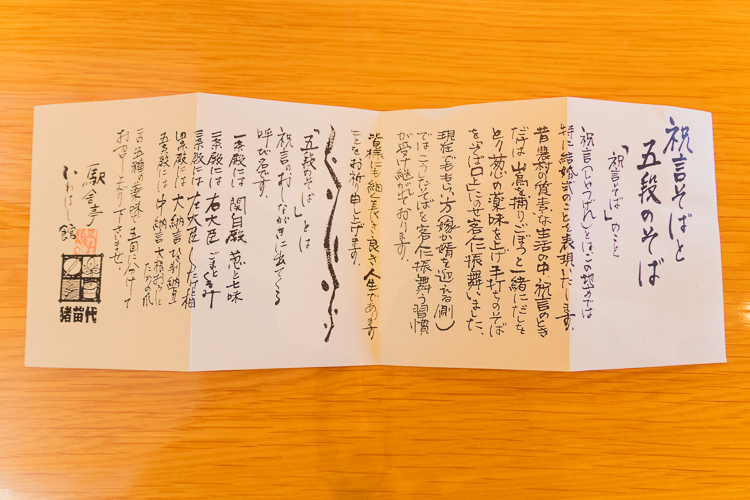 祝言そばと
五段のそば
「祝言そば」のこと
祝言(しゅうげん)とはこの地方では
特に結婚式のことを表現いたします。
昔農村の質素な生活の中、祝言のとき
だけは山鳥を捕りごぼうと一緒にだしを
とり葱の薬味を上げ手打ちのそば
を「そば口」にのせ客仁振舞いました。
現在でももらい方(嫁か婿を迎える側)
ではこうしたそばを客仁振舞う習慣
が受け継がれております。
皆様にも細く長き良き人生であります
ことをお祈り申し上げます。
「五段のそば」とは
祝言のおしながきに出てくる
呼び名です。
一系殿には 関白殿 葱と七味
二系殿には 右大臣 ごまくるみ
三系殿には 左大臣
四系殿には 大納言
五系殿には 中納言 大根おろしと
この五種の薬味で五回に分けて
お召し上り下さいませ。
駅舎亭
いわはし館
猪苗代